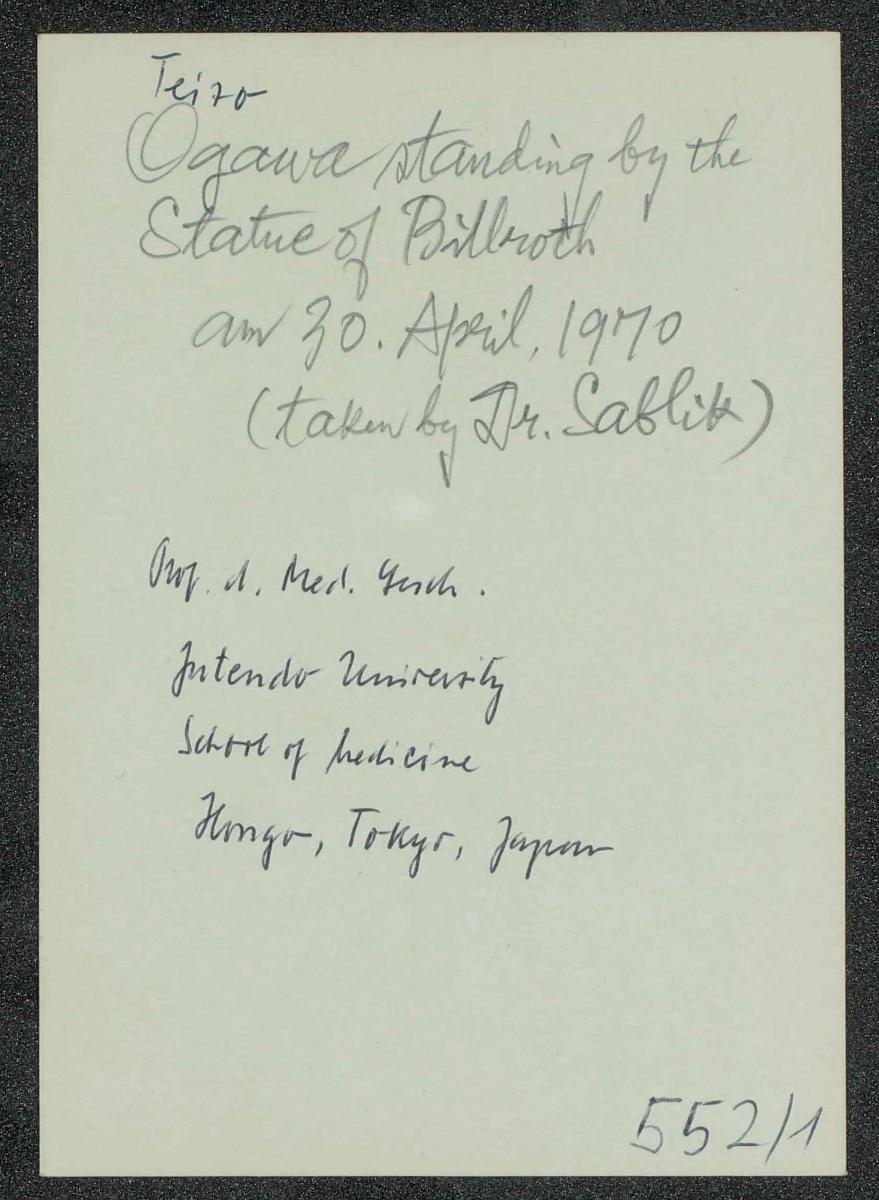 Teizo
Ogawa standing by the
Statue of Billroth
am 30. April, 1970
(taken by Dr. Sablik)
Prof. d. Med. Gesch.
Jutendo University
School of Medicine
Hongo, Tokyo, Japan
552/1